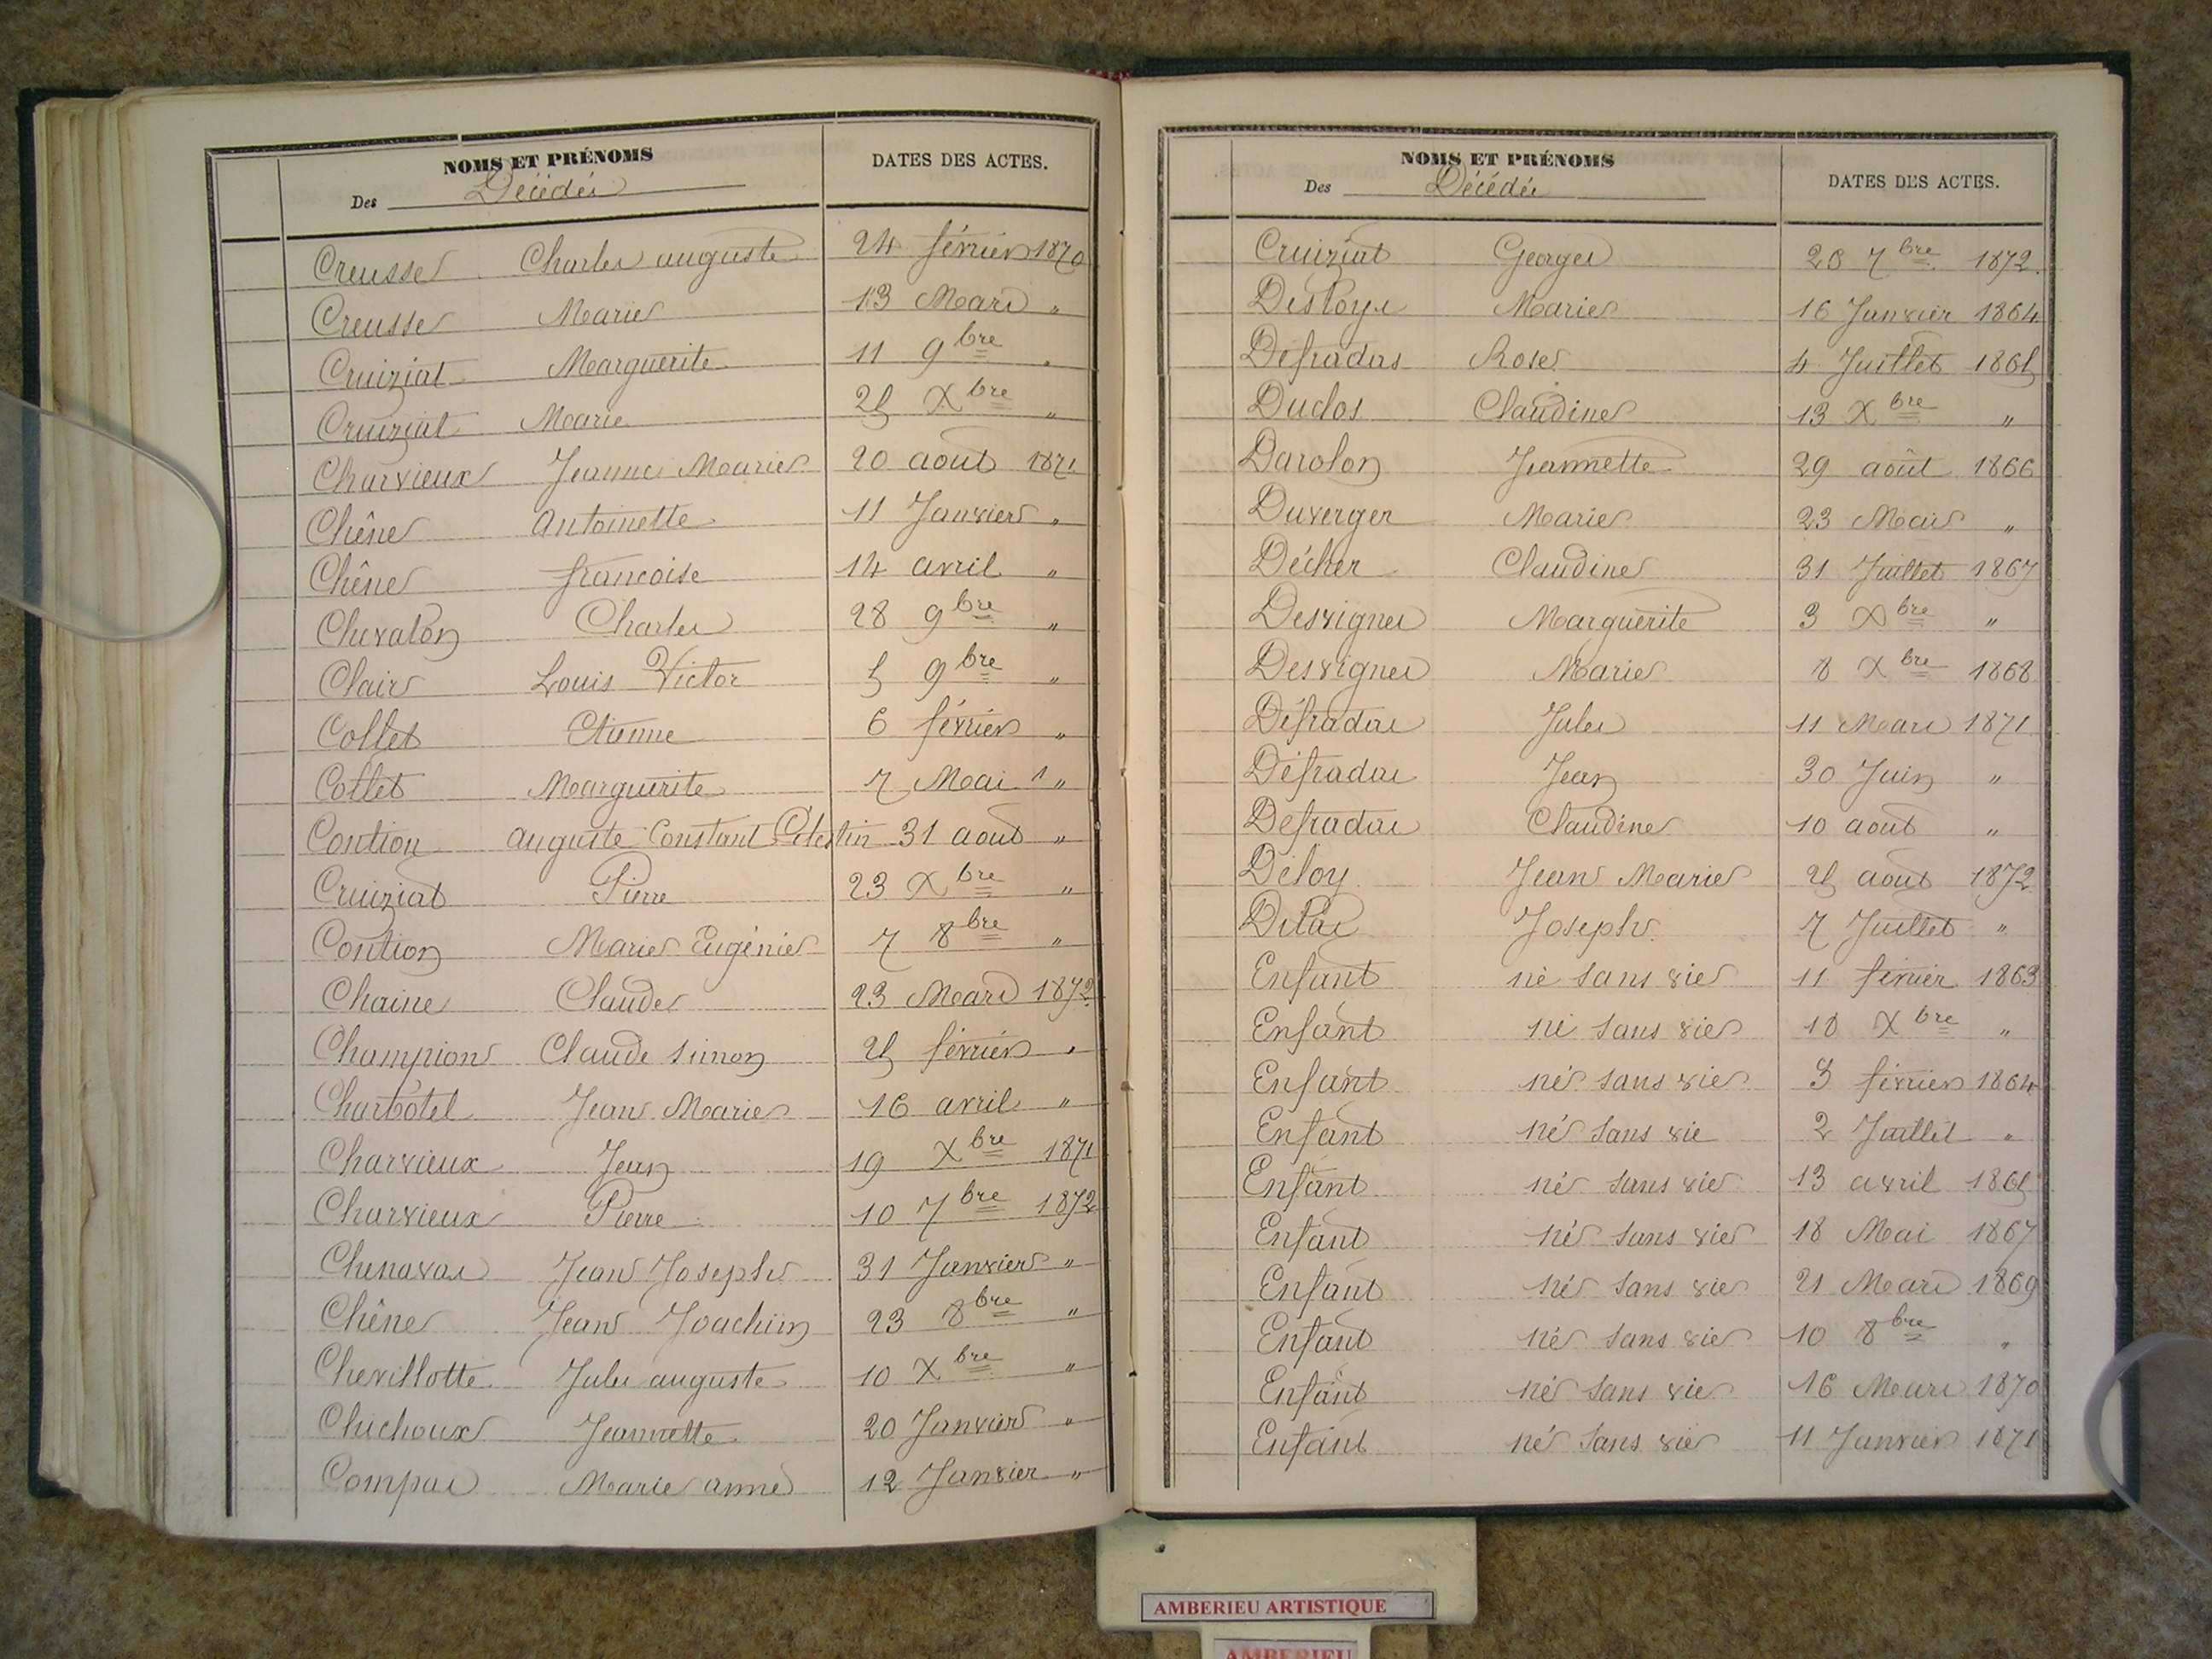 NOMS ET PRÉNOMS
Des Décédés
DATES DES ACTES.
Creusse Charles auguste 24 février 1870
Creusse Marie 13 Mars "
Cruiziat Marguerite 11 9bre "
Cruiziat Marie 25 Xbre "
Charvieux Jeanne Marie 20 aout 1871
Chêne antoinette 11 Janvier "
Chêne francoise 14 avril "
Chevalon Charles 28 9bre "
Clair Louis Victor 5 9bre "
Collet Etienne 6 février "
Collet Marguerite 7 Mai "
Contion auguste Constant Célestin 31 aout "
Cruiziat Pierre 23 Xbre "
Contion Marie Eugénie 7 8bre "
Chaine Claude 23 Mars 1872
Champion Claude simon 25 février "
Charbotel Jean Marie 16 avril "
Charvieux Jean 19 Xbre 1871
Charvieux Pierre 10 7bre 1872
Chenavas Jean Joseph 31 Janvier "
Chêne Jean Joachim 23 8bre "
Chevillotte Jules auguste 10 Xbre "
Chichoux Jeannette 20 Janvier "
Compas Marie anne 12 Janvier "
NOMS ET PRÉNOMS
Des Décédés
DATES DES ACTES.
Cruiziat Georges 28 7bre 1872
Desloye Marie 16 Janvier 1864
Défradas Rose 4 Juillet 1865
Duclos Claudine 13 Xbre "
Darolon Jeannette 29 août 1866
Duverger Marie 23 Mars "
Décher Claudine 31 Juillet 1867
Desvignes Marguerite 3 Xbre "
Desvignes Marie 8 Xbre 1868
Défradas Jules 11 Mars 1871
Défradas Jean 30 Juin "
Défradas Claudine 10 aout "
Déloy Jean Marie 25 aout 1872
Joseph 7 Juillet "
Enfant né sans vie 11 février 1863
Enfant né sans vie 18 Xbre "
Enfant né sans vie 3 février 1864
Enfant né sans vie 2 Juillet "
Enfant né sans vie 13 avril 1865
Enfant né sans vie 18 Mai 1867
Enfant né sans vie 21 Mars 1869
Enfant né sans vie 10 8bre "
Enfant né sans vie 16 Mars 1870
Enfant né sans vie 11 Janvier 1871
AMBERIEU ARTISTIQUE
AMBERIEU